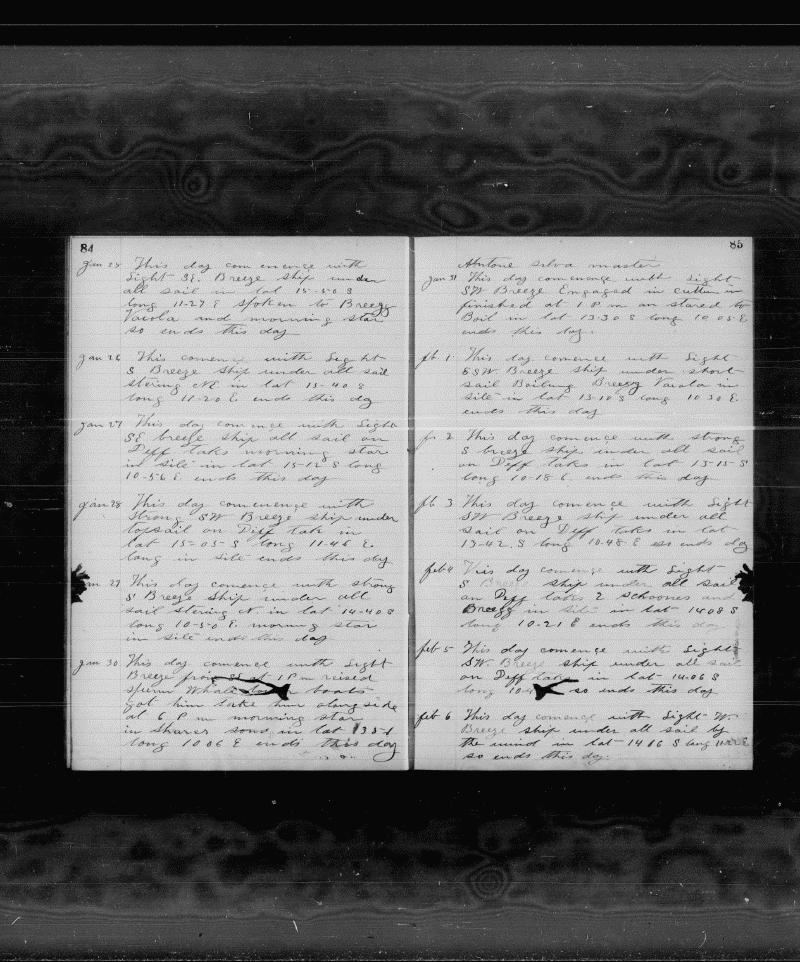 84
This day com encence with
Light SE. Breeze ship under
all sail in lat 15-50 S
long 11-27 E spoken to Breezy
and morning star
so ends this day
Jan 26 This comence with Light
S Breeze ship under all sail
stering in lat 15-40 S
long 11-20 E ends this day
Jan 27 This day comence with Light
SE breeze ship all sail on
Diff taks morning star
in site in lat 15-12 S long
10-56 E ends this day
Jan 28 This day comenence with
strong SW Breeze ship under
topsail on Diff take in
lat 15-03 S long 11-46 E.
in site ends this day
This day comence with strong
S Breeze ship under all
sail stering N in lat 14-40 S
long 10-50 E morning star
in site ends this day
Jan 30 This day comence with Light
Breeze from at 1 P m reised
sperm Whale boats
got him take him alongside
at 6 P m morning star
in in lat
long 10 06 E ends this day
85
Antone silva master
Jan 31 This day comence with Light
SW Breeze Engaged in cutten in
finished at 1 P m an stared to
Boil in lat 13-30 S long 10 05 E
ends this day.
fb 1 This day comence with Light
SSW. Breeze ship under short
sail Boiling Breezy in
site in lat 13-10 S long 10 30 E
ends this day
2 This day comence with strong
S breeze ship under all sail
on Diff taks in lat 13-15 S
long 10-18 E. ends this day
fb 3 This day comence with Light
SW Breeze ship under all
sail on Diff taks in lat
13-42 S long 10-48 E ends day
feb 4 This day comence with Light
S Breeze ship under all sail
on Diff taks 2 schoones and
Breezy in site in lat 14 08 S
long 10-21 E ends this day
feb 5 This day comence with Light
SW. Breeze ship under all sail
on Diff taks in lat 14-06 S
long so ends this day
feb 6 This day comence with Light W.
Breeze ship under all sail by
the wind in lat 14 16 S long
so ends this day.